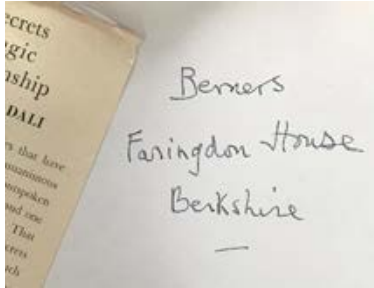 ecrets
gic
nship
DALI
s that have
unspoken
and one
That
cress
ch
Berners
Faringdon House
Berkshire